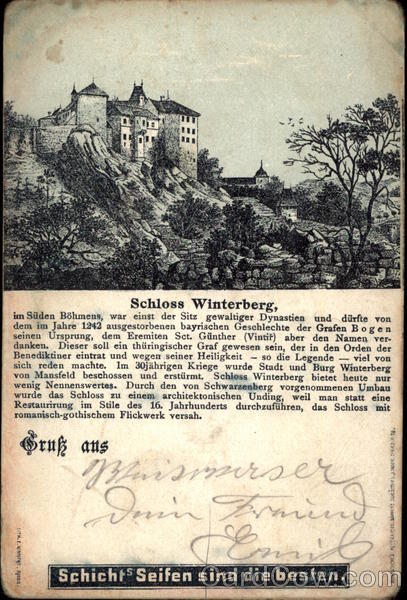 Schloss Winterberg,
im Süden Böhmens, war einst der Sitz gewaltiger Dynastien und dürfte von
dem im Jahre 1242 ausgestorbenen bayrischen Geschlechte der Grafen Bogen
seinen Ursprung, dem Eremiten Sct. Günther (Vintíř) aber den Namen ver-
danken. Dieser soll ein thüringischer Graf gewesen sein, der in den Orden der
Benediktiner eintrat und wegen seiner Heiligkeit - so die Legende - viel von
sich reden machte. Im 30jährigen Kriege wurde Stadt und Burg Winterberg
von Mansfeld beschossen und erstürmt. Schloss Winterberg bietet heute nur
wenig Nennenswertes. Durch den von Schwarzenberg vorgenommenen Umbau
wurde das Schloss zu einem architektonischen Unding, weil man statt eine
Restaurirung im Stile des 16. Jahrhunderts durchzuführen, das Schloss mit
romanisch-gothischem Flickwerk versah.
Gruß aus
Dein Freund
Emil
Schicht's Seifen sind die besten.
CardCow.com